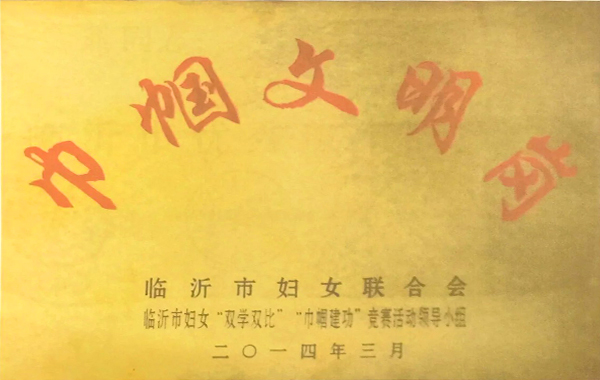 巾帼文明岗
临沂市妇女联合会
临沂市妇女“双学双比”“巾帼建功”竞赛活动领导小组
二〇一四年三月